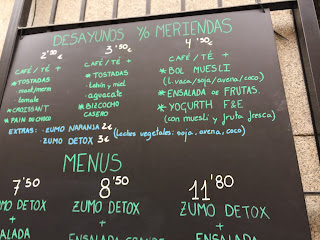 DESAYUNOS Y/o MERIENDAS
2'50
CAFÉ / TÉ +
* TOSTADAS
- mant/merm
tomate
* CROISSANT
* PAIN DU CHOCO
3'50
CAFÉ / TÉ +
* TOSTADAS
- tahin y miel
- aguacate
* BIZCOCHO
CASERO
4'50
CAFÉ / TÉ +
* BOL MUESLI
(l. vaca/soja/avena/coco)
* ENSALADA DE FRUTAS.
* YOGURTH F&E
(con muesli y fruta fresca)
EXTRAS: - ZUMO NARANJA 2€ (Leches vegetales: soja, avena, coco)
- ZUMO DETOX 3€
MENUS
7'50
8'50
11'80
ZUMO DETOX
+
ZUMO DETOX
+
ENSALADA
ZUMO DETOX
+
ENSALADA